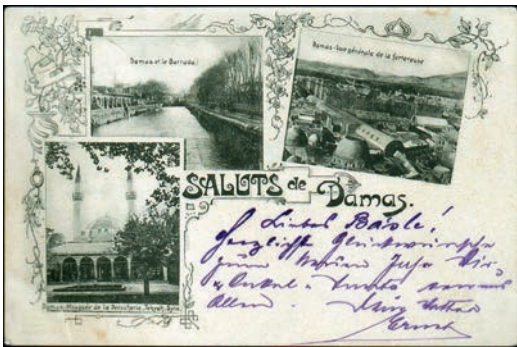 Damas et le Barrada.
Damas - Vue générale de la forteresse
SALUTS de Damas.
Damas, Mosquée de la Derwicherie, Tekyeh, Syrie
Liebes Bäsle!
Herzliche Glückwünsche
zum Neuen Jahr Dir,
Onkel Tante von uns
Allen. Dein Vetter
Ernst